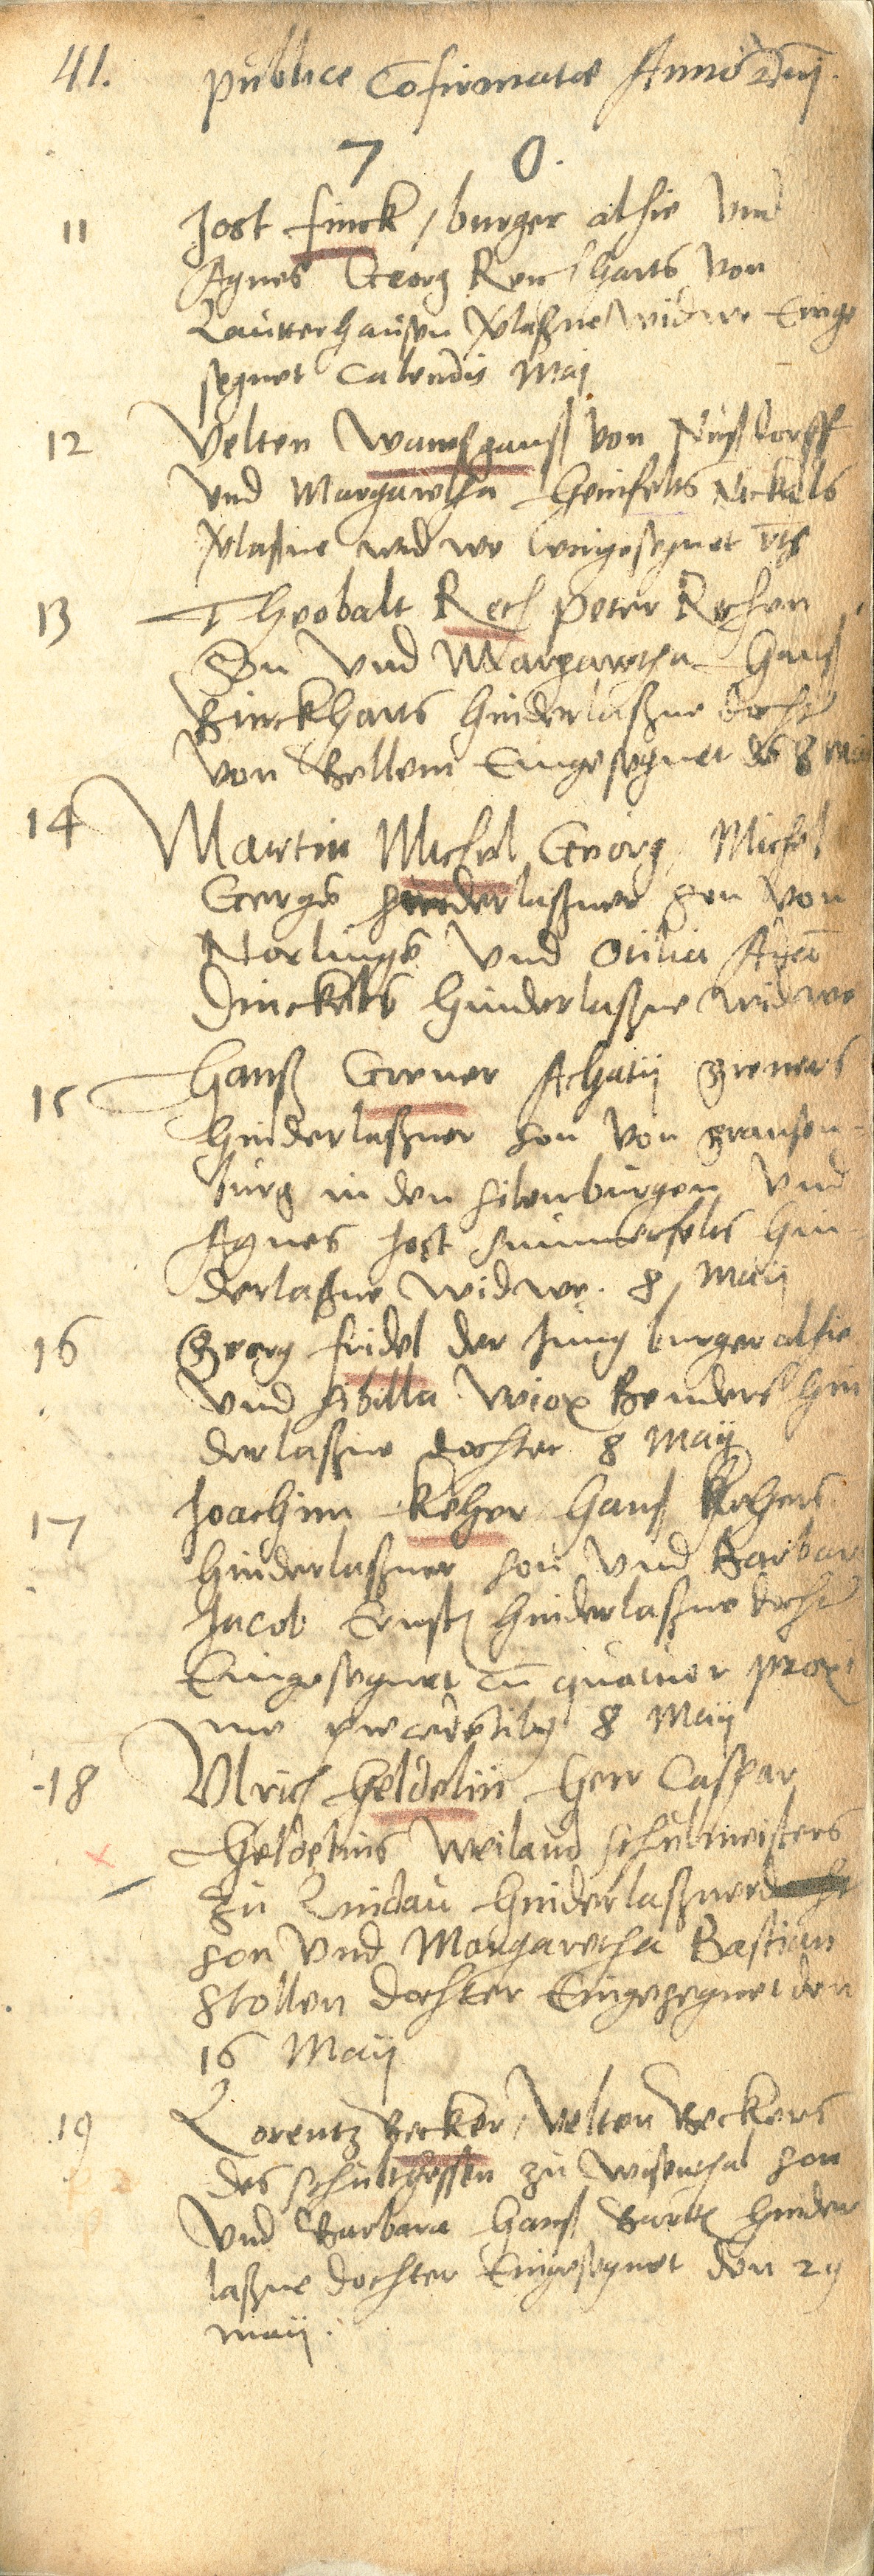 41. publice Cofirmatæ Anno Dnj.
7 0.
11 Jost Finck / burger alhie vnd
Agnes Georg Reichharts von
Lautterhausen v̈laßne widwe Einge
segnet Calendis Maij
12 Velten Wambsganß von Nußdorff
vnd Margaretha Heinfelts Nickels
v̈laßne widwe eingesegnet vts
13 Theobalt Rech Peter Rechen
Son vnd Margaretha Hanß
Burckharts hinderlaßne docht
von Bellem Eingesegnet de 8 Maij
14 Martin Michel Georg / Michel
Gergs hinderlaßner son von
Norlinge vnd Otilia Adā
Dinckels hinderlaßne widwe
15 Hanß Grener Achatij greners
hinderlaßner son von gransen-
burg in den Silenburgen vnd
Agnes Jost Summerfelts hin-
derlaßne widwe. 8 Maij
16 Georg Fridel der Jung burger alhie
vnd Sibilla Wiox Benders hin
derlaßne dochter 8 Maij
17 Joachim Keher / Hanß Kehers
hinderlaßner son vnd Barbar
Jacob Ernsts hinderlaßne docht
Eingesegnet cū quatuor proxi
me præcedētib9 8 Maij
18 Vlrich Heldelin Herr Caspar
Heldelins weiland schulmeisters
zu Lindau hinderlaßner
son vnd Margaretha Bastian
Stollen dochter Eingesegnet den
16 Maij
19 Lorentz Becker / Velten Beckers
des schultheßen zu Wisenthal son
vnd Barbara Hanß Burcks hinder
laßne dochter Eingesegnet den 29
maij.